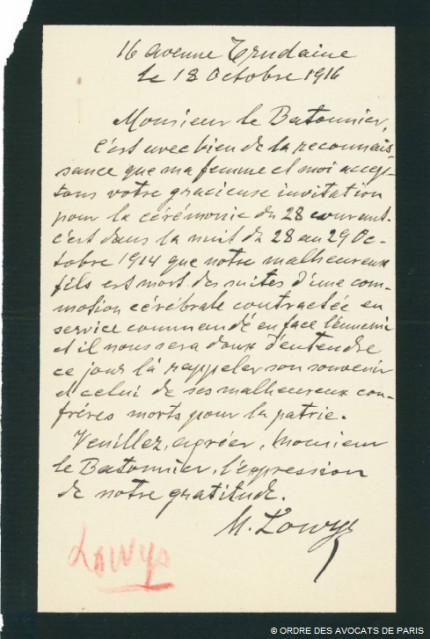 16 avenue Trudaine
le 18 Octobre 1916
Monsieur le Batonnier,
c'est avec bien de la reconnais-
sance que ma femme et moi accep-
tons votre gracieuse invitation
pour la cérémonie du 28 courant.
c'est dans la nuit du 28 au 29 Oc-
tobre 1914 que notre malheureux
fils est mort des suites d'une com-
motion cérébrale contractée en
service commandé en face l'ennemi
et il nous sera doux d'entendre
ce jour là rappeler son souvenir
et celui de ses malheureux con-
frères morts pour la patrie.
Veuillez, agréer, Monsieur
le Batonnier, l'expression
de notre gratitude.
M. Lowys
Lowys
© ORDRE DES AVOCATS DE PARIS